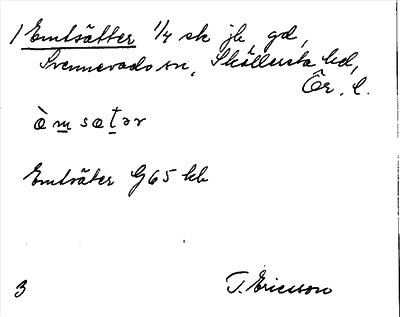 1 Emtsätter 1/4 sk jb gd,
Svennevads sn, Sköllersta hd,
Ör. l.
òm sætər
Emtsäter G65 kb
3
T. Ericsson